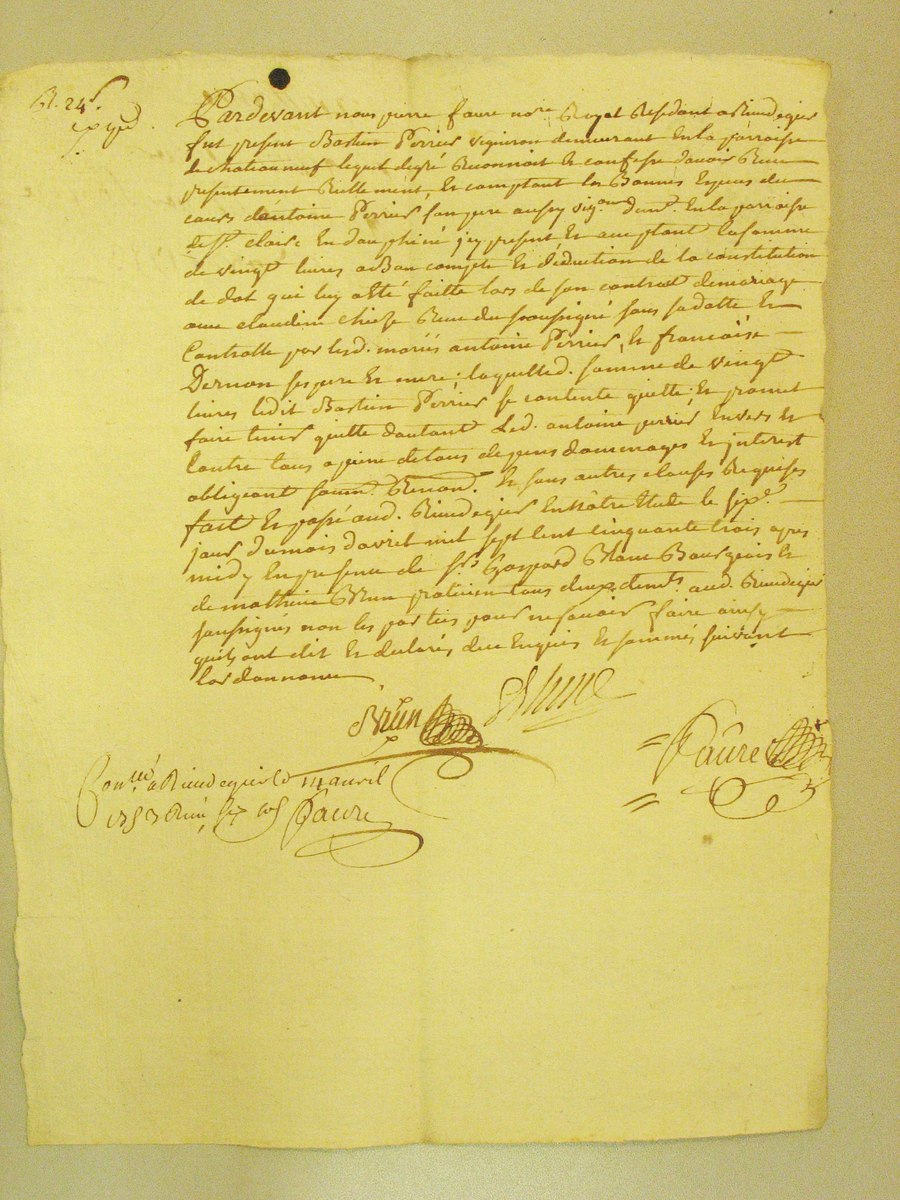 R. 24s.
expéd.
Pardevant nous pierre faure nore Royal Residant a Rivedegier
fut present Bastien Perrier vigneron demeurant En la parroisse
de chateauneuf lequel degré Reconnoit Et confesse davoir Reçeu
presentement Réellement, Et comptant les Bonnes Especes du
cours dantoine Perrier son pere aussy vigon demt. En la parroisse
de St. claire En dauphiné jcy present Et aceptant la somme
de vingt livres a Bon compte Et déduction de la constitution
de dot qui luy a Eté faitte lors de son contrat de mariage
avec claudine Reçeu du soussigné sous sa datte Et
Controlle par lesd. mariés antoine Perrier, Et francoise
Dernon ses pere Et mere, laquelled. somme de vingt
livres ledit Bastien Perrier se contente quitte, Et promet
faire tenir quitte dautant Led. antoine perrier Envers Et
Contre tous a peine de tous depens dommages Et interest
obligeant soumt. Renont. Et sous autres clauses Requises
fait Et passé aud. Rivedegier En nôtre Etude le sixe.
jour du mois davril mil sept Cent Cinquante trois apres
midy En presence de srs. Gaspard Blanc Bourgeois Et
de mathieu Brun praticien tous deux demts. aud. Rivedegier
soussignés non les parties pour ne scavoir faire ainsy
quils ont dit Et declarés de ce Enquis Et sommés suivant
lordonnance
Brun Blanc
Faure
Conllé. a Rivedegier le 14 avril
1753 Reçu, Faure